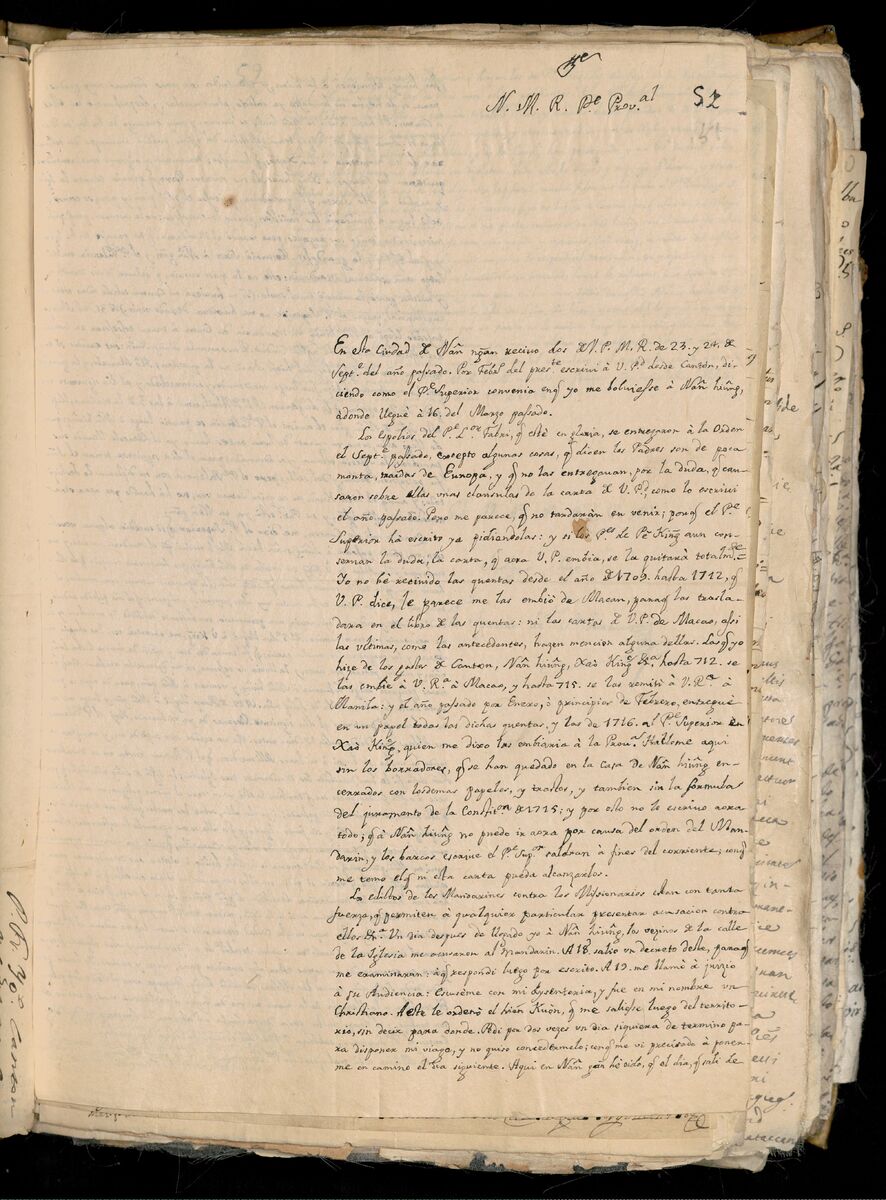 N. M. R. P.e Prov.al 52
En esta Ciudad de Nañ ngan recivo dos de V. P. M. R. de 23. y 24. de
Sept.e del año passado. Por Feb.o del pres.te escrivi à V. P.d desde Canton, di-
ciendo como el P.e Superior convenia en q yo me bolviesse à Nañ hiung,
àdonde lleguè à 16. del Marzo passado.
Los espolios del P.e L. Fabri, q estè en gloria, se entregaron à la Orden
el Sept.e passado, excepto algunas cosas, q dicen los Padres son de poca
monta, traidas de Europa, y q no las entregavan, por la duda, q cau-
saron sobre ellas unas clausulas de la carta de V. P.d como lo escrivi
el año passado. Pero me parece, q no tardaràn en venir; porq el P.e
Superior hà escrito ya pidiendolas: y si los P.es de Pe King aun con-
servan la duda, la carta, q aora V. P. embia, se la quitarà totalm.te
Yo no hè recivido las quentas desde el año de 1709. hasta 1712, q
V. P. dice, le parece me las embiò de Macan, paraq las trasla-
dara en el libro de las quentas: ni las cartas de V. P. de Macao, assi
las ultimas, como las antecedentes, hazen mencion alguna dellas. Las q yo
hize de los gastos de Canton, Nañ hiung, Xaò King &.a hasta 712. se
las embie à V. R.a à Macao, y hasta 715. se las remiti à V. R.a à
Manila: y el año passado por Enero, ò principios de Febrero, entreguè
en un papel todas las dichas quentas, y las de 1716. al P.e Superior en
Xaò King, quien me dixo las embiaria à la Prov.a Hallome aqui
sin los borradores, q se han quedado en la Casa de Nañ hiung en-
cerrados con losdemas papeles, y trastos, y tambien sin la formula
del juramento de la Constit.on de 1715; y por esso no le escrivo aora
todo; q à Nañ hiung no puedo ir aora por causa del orden del Man-
darin, y los barcos escrive el P.e Sup.or saldràn à fines del corriente; conq
me temo el q ni esta carta pueda alcanzarlos.
Los edictos de los Mandarines contra los Missionarios estan con tanta
fuerza, q permiten à qualquier particular presentar acusacion contra
ellos &.a Un dia despues de llegado yo à Nañ hiung, los vezinos de la calle
de la Iglesia me acusaron al Mandarin. A 18. saliò un decreto deste, paraq
me examinaran: àq respondi luego por escrito. A 19. me llamò à juizio
à su Audiencia: Escusème con mi dyssenteria, y fue en mi nombre un
Christiano. A este le ordenò el hien Kuòn, q me saliesse luego del territo-
rio, sin decir para donde. Pedi por dos vezes un dia siquiera de termino pa-
ra disponer mi viage, y no quiso concedermelo; conq me vi precisado à poner-
me en camino el dia siguiente. Aqui en Nañ gan hè oido, q el dia, q sali de